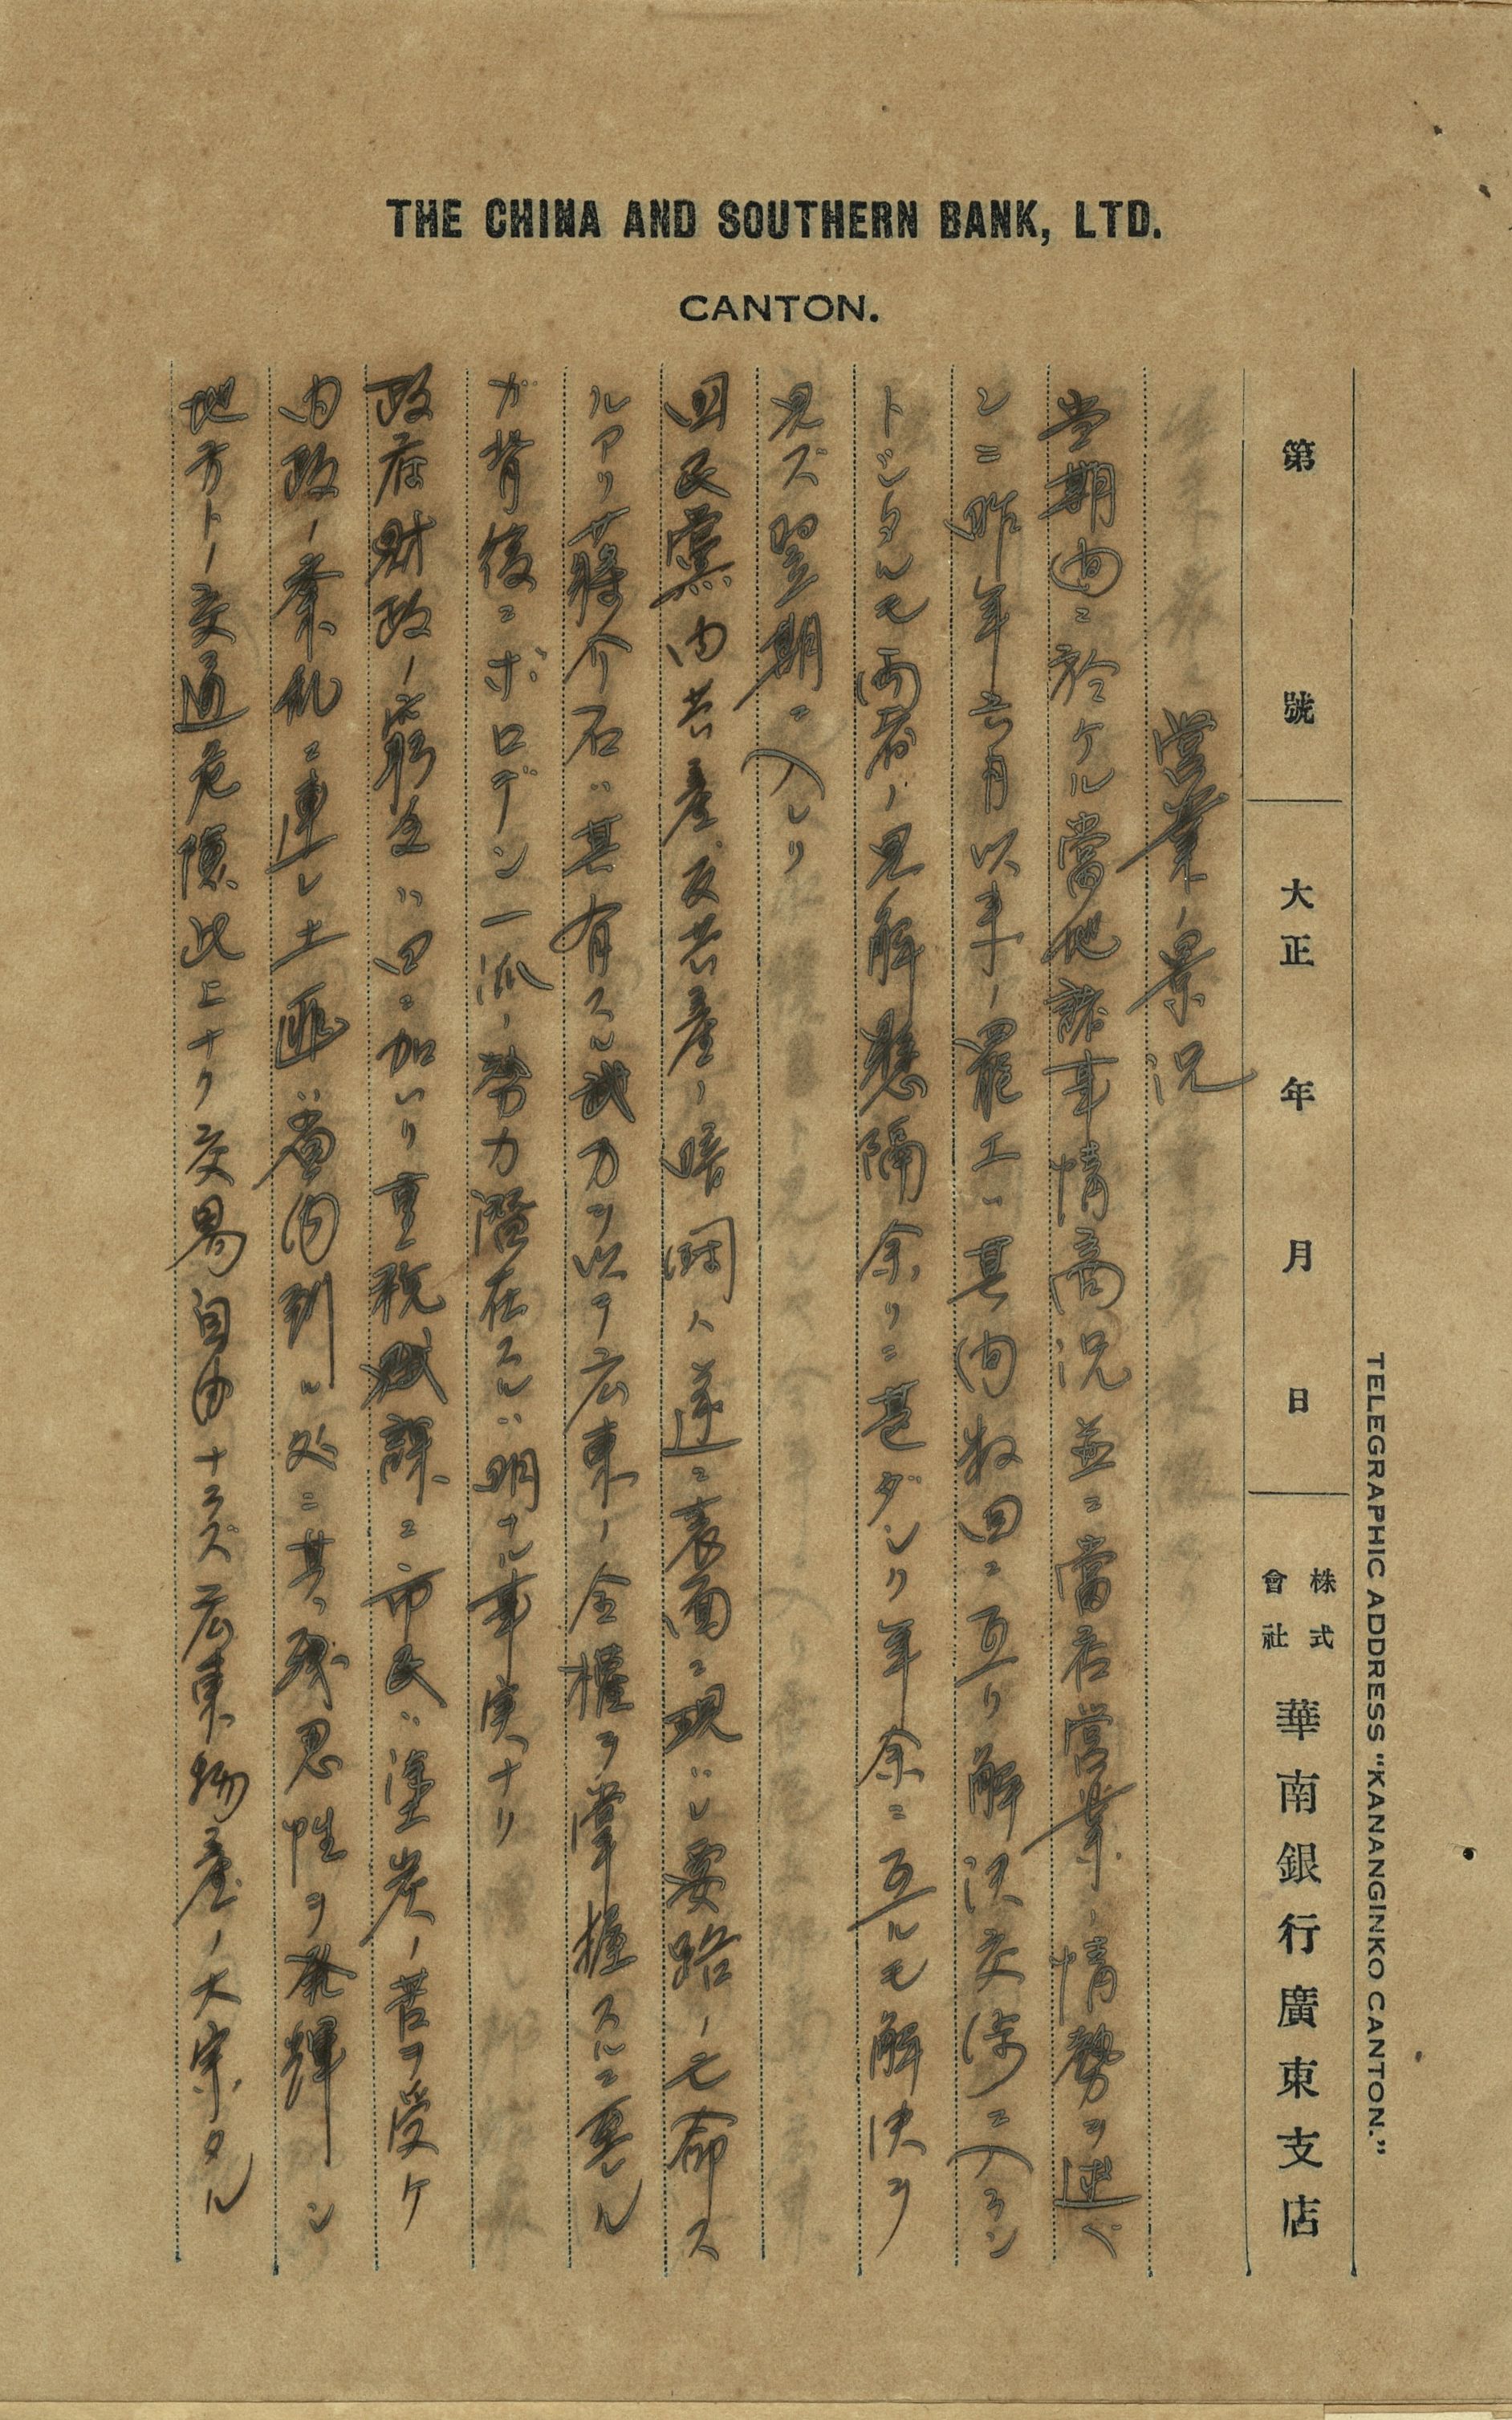 THE CHINA AND SOUTHERN BANK, LTD.
CANTON.
TELEGRAPHIC ADDRESS "KANANGINKO CANTON."
第 號 大正 年 月 日 株式會社 華南銀行廣東支店
営業ノ景況
当期間ニ於ケル當地諸事情商況並ニ當店営業ノ情勢ヲ述ベ
ンニ昨年六月以来ノ罷工ハ其間数回ニ亙リ解決交渉ニ入ラン
トシタルモ両者ノ見解懸隔余リニ甚ダシク年余ニ亙ルモ解決ヲ
見ズ翌期ニ入レリ
国民黨内共産反共産ノ暗闘ハ遂ニ表面ニ現ハレ要路ノ モ命ス
ルアリ 蒋介石ハ其有スル武力ヲ以テ広東ノ全權ヲ掌握スルニ至ル
ガ背後ニボロデン一派ノ勢力潜在スルハ明ナル事実ナリ
政府財政ノ窮乏ハ日ニ加ハリ重税賦課ニ市民ハ塗炭ノ苦ヲ受ケ
内政ノ紊乱ニ連レ土匪ハ省内到ル処ニ其残忍性ヲ発揮シ
地方トノ交通危険此上ナク交易自由ナラズ広東物産ノ大宗タル